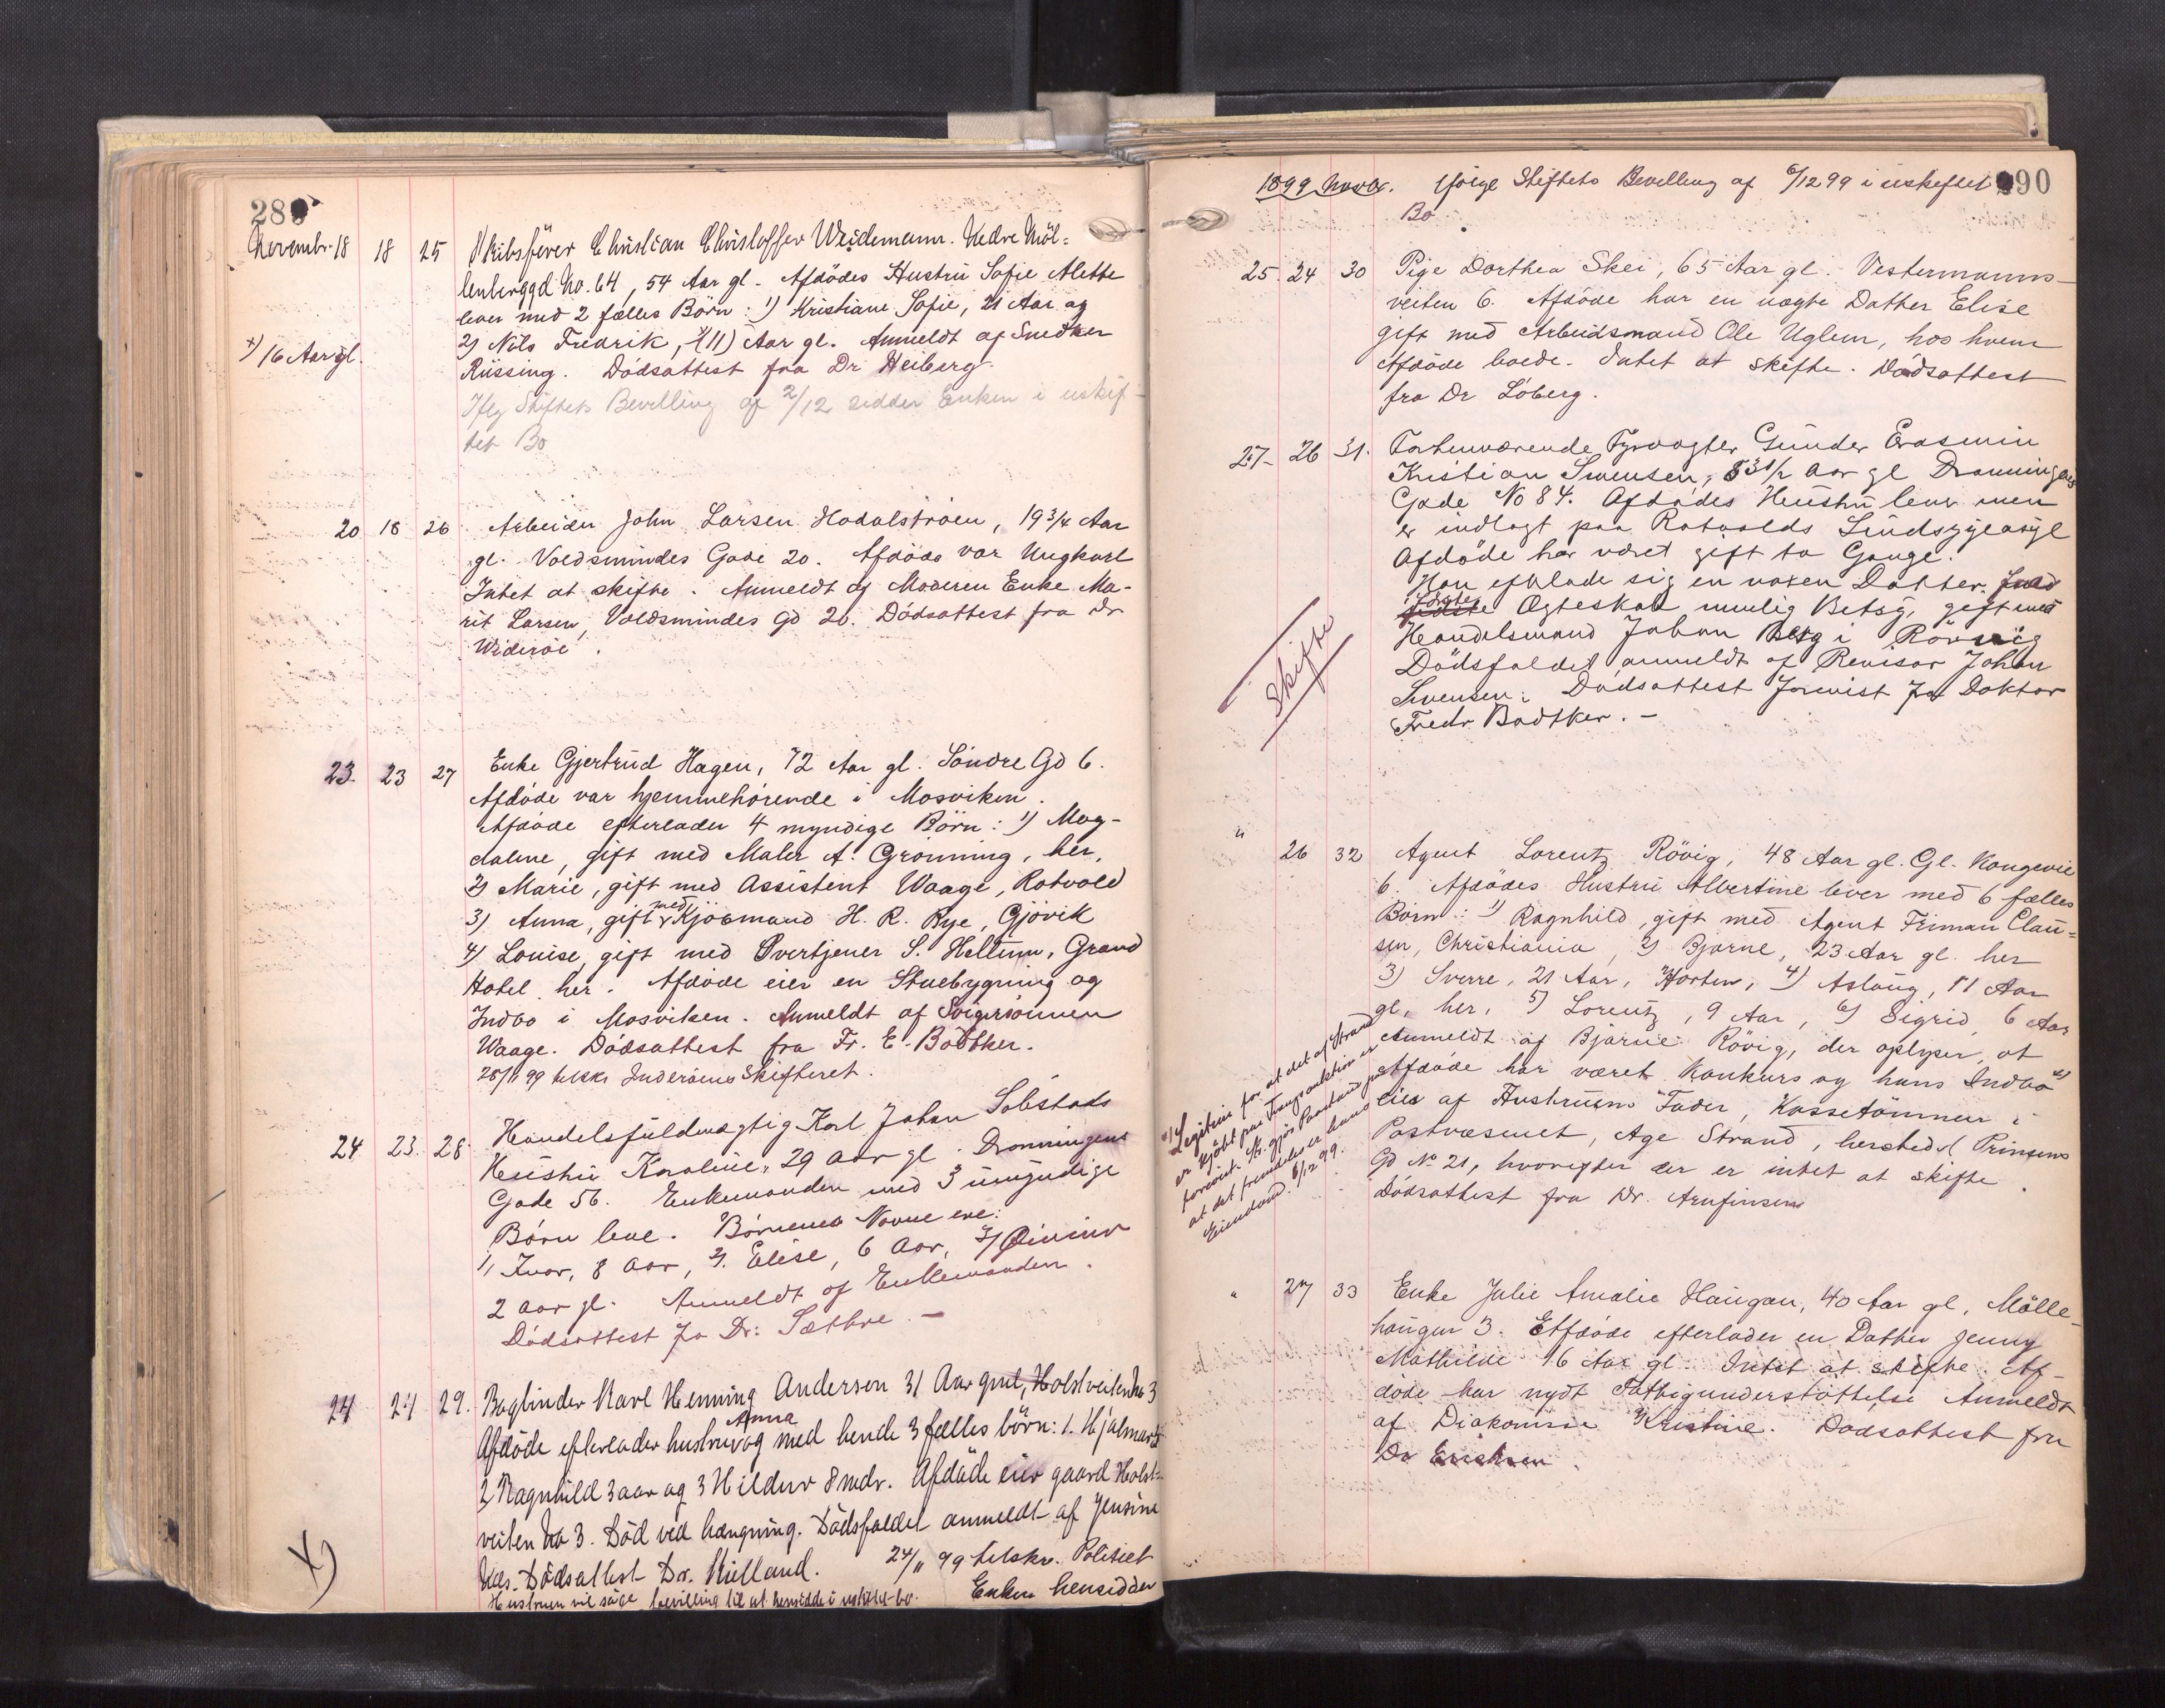 28
Novembr. 18 18 25 Skibsfører Christian Christoffer Weidemann. Nedre Møl=
lenberggd No. 64, 54 Aar gl. Afdødes Hustru Sofie Alette
lever med 2 fælles Børn: 1) Kristiane Sofie, 21 Aar og
2) Nils Fredrik, x) (11) Aar gl. Anmeldt af Snedker
x) 16 Aar gl.
Riissing. Dødsattest fra Dr Heiberg.
Iflg Stiftets Bevilling af 2/12 sidder Enken i uskif-
tet Bo
20 18 26 Arbeider John Larsen Hodalstrøen, 19 3/4 Aar
gl. Voldsmindes Gade 20. Afdøde var Ungkarl
Intet at skifte. Anmeldt af Moderen Enke Ma-
rit Larsen, Voldsmindes Gd 20. Dødsattest fra Dr
Widerøe.
23. 23 27 Enke Gjertrud Hagen, 72 Aar gl. Søndre Gd 6.
Afdøde var hjemmehørende i Mosviken.
Afdøde efterlader 4 myndige Børn: 1) Mag-
dalene, gift med Maler A. Grønning, her,
2) Marie, gift med Assistent Waage, Rotvold
3) Anna, gift med Kjøbmand H. R. Rye, Gjøvik
4) Louise, gift med Overtjener S. Heltum, Grand
Hotel her. Afdøde eier en Stuebygning og
Indbo i Mosviken. Anmeldt af Svigersønnen
Waage. Dødsattest fra Fr. E. Bødtker.
28/11 99 tilskr. Inderøens Skifteret.
24 23. 28. Handelsfuldmægtig Karl Johan Solstads
Hustru Karoline, 29 Aar gl. Dronningens
Gade 56. Enkemanden med 3 umyndige
Børn leve. Børnenes Navne ere:
1) Ivar, 8 Aar, 2). Elise, 6 Aar, 3) Øivind
2 Aar gl. Anmeldt af Enkemanden.
Dødsattest fra Dr: Sæthre. —
24 24 29. Bogbinder Karl Henning Anderson 31 Aar gml, Holstveiten No 3
Afdøde efterlader hustru Anna og med hende 3 fælles børn: 1. Hjalmar 5
2, Ragnhild 3 aar og 3 Hildur 8 mdr. Afdøde eier gaard Holst=
veiten No 3. Død ved hængning. Dødsfaldet anmeldt af Jensine
Næs. Dødsattest Dr. Kielland. 24/11 99 tilskr. Politiet
x) Hustruen vil søge bevilling til at hensidde i uskiftet bo. Enken hensidder
1899 Novbr. ifølge Stiftets Bevilling af 6/12 99 i uskiftet 90
Bo.
25. 24 30 Pige Dorthea Skei, 65 Aar gl. Vestermanns-
veiten 6. Afdøde har en uægte Datter Elise
gift med Arbeidsmand Ole Uglem, hos hvem
Afdøde boede. Intet at skifte. Dødsattest
fra Dr Løberg.
27- 26 31. Forhenværende Fyrvogter Gunder Erasmin
Kristian Svensen, 83 1/2 Aar gl Dronningens
Gade No 84. Afdødes Hustru lever men
er indlagt paa Rotvolds Sindssygeasyl
Afdøde har været gift to Gange.
Han efterlade sig en voxen Datter fra
første Ægteskab nemlig Betsy, gift med
Handelsmand Johan Berg i Rørvig
Dødsfaldet anmeldt af Revisor Johan
Svensen. Dødsattest forevist fra Doktor
Fredr Bødtker. —
Skifte
" 26 32 Agent Lorentz Røvig, 48 Aar gl. Gl. Kongevei
6. Afdødes Hustru Albertine lever med 6 fælles
Børn: 1) Ragnhild, gift med Agent Friman Clau=
sen, Christiania, 2) Bjarne, 23 Aar gl. her
3) Sverre, 21 Aar, Horten, 4) Aslaug, 11 Aar
gl, her, 5) Lorentz, 9 Aar, 6) Sigrid, 6 Aar
Anmeldt af Bjarne Røvig, der oplyser, at
Afdøde har været Konkurs og hans Indbo x)
eies af Hustruens Fader, Kassetømmer i
Postvæsenet, Age Strand, herstedet Prinsens
Gd No 21, hvorefter der er intet at skifte.
Dødsattest fra Dr. Arnfinsen
x) Legitim for at det af Strand
er kjøbt paa Tvangsauktion er
forevist. St. gjør Paastand paa
at det fremdeles er hans
Eiendom. 6/12 99.
" 27 33 Enke Julie Amalie Haugan, 40 Aar gl, Mølle-
haugen 3. Afdøde efterlader en Datter Jenny
Mathilde 16 Aar gl. Intet at skifte. Af-
døde har nydt Fattigunderstøttelse Anmeldt
af Diakonisse Kristine. Dødsattest fra
Dr Erichsen.